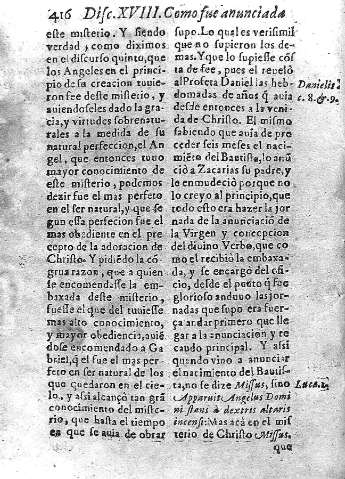 416 Disc. XVIII. Como fue anunciada
este misterio. Y siendo
verdad, como diximos
en el discurso quinto, que
los Angeles en el princi-
pio de su creacion tuuie-
ron fee deste misterio, y
auiendoseles dado la gra-
cia, y virtudes sobrenatu-
rales a la medida de su
natural perfeccion, el An-
gel, que entonces tuuo
mayor conocimiento de
este misterio, podemos
dezir fue el mas perfeto
en el ser natural, y que se-
gun essa perfeccion fue el
mas obediente en el pre-
cepto de la adoracion de
Christo. Y pidiēdo la cō-
grua razon, que a quien
se encomendasse la em-
baxada deste misterio,
fuesse el que del tuuiesse
mas alto conocimiento,
y mayor obediencia, auiē
dose encomendado a Ga-
briel, q̄ el fue el mas per-
feto en ser natural de los
que quedaron en el cie-
lo, y assi alcançò tan grā
conocimiento del miste-
rio, que hasta el tiempo
en que se auia de obrar
supo. Lo qual es verisimil
que no supieron los de-
mas. Y que lo supiesse cōs
ta de fee, pues el reuelò
al Profeta Daniel las heb-
domadas de años q̄ auia
desde entonces a la veni-
da de Christo. El mismo
sabiendo que auia de pro
ceder seis meses el naci-
miēto del Bautista, lo anū
ciò a Zacarias su padre, y
le enmudeciò porque no
lo creyo al principio, que
todo esto era hazer la jor
nada de la anunciacion de
la Virgen y concepcion
del diuino Verbo, que co
mo el recibiò la embaxa-
da, y se encargò del ofi-
cio, desde el punto q̄ fue
glorioso anduuo las jor-
nadas que supo era fuer-
ça andar primero que lle
gar a la anunciacion y re
caudo principal. Y assi
quando vino a anunciar
el nacimiento del Bautis-
ta, no se dize Missus, sino
Apparuit Angelus Domi
ni stans à dextris altaris
incensi: Mas acà en el mis
terio de Christo Missus,
que
Danielis
c. 8. & 9.
Luca. 1.